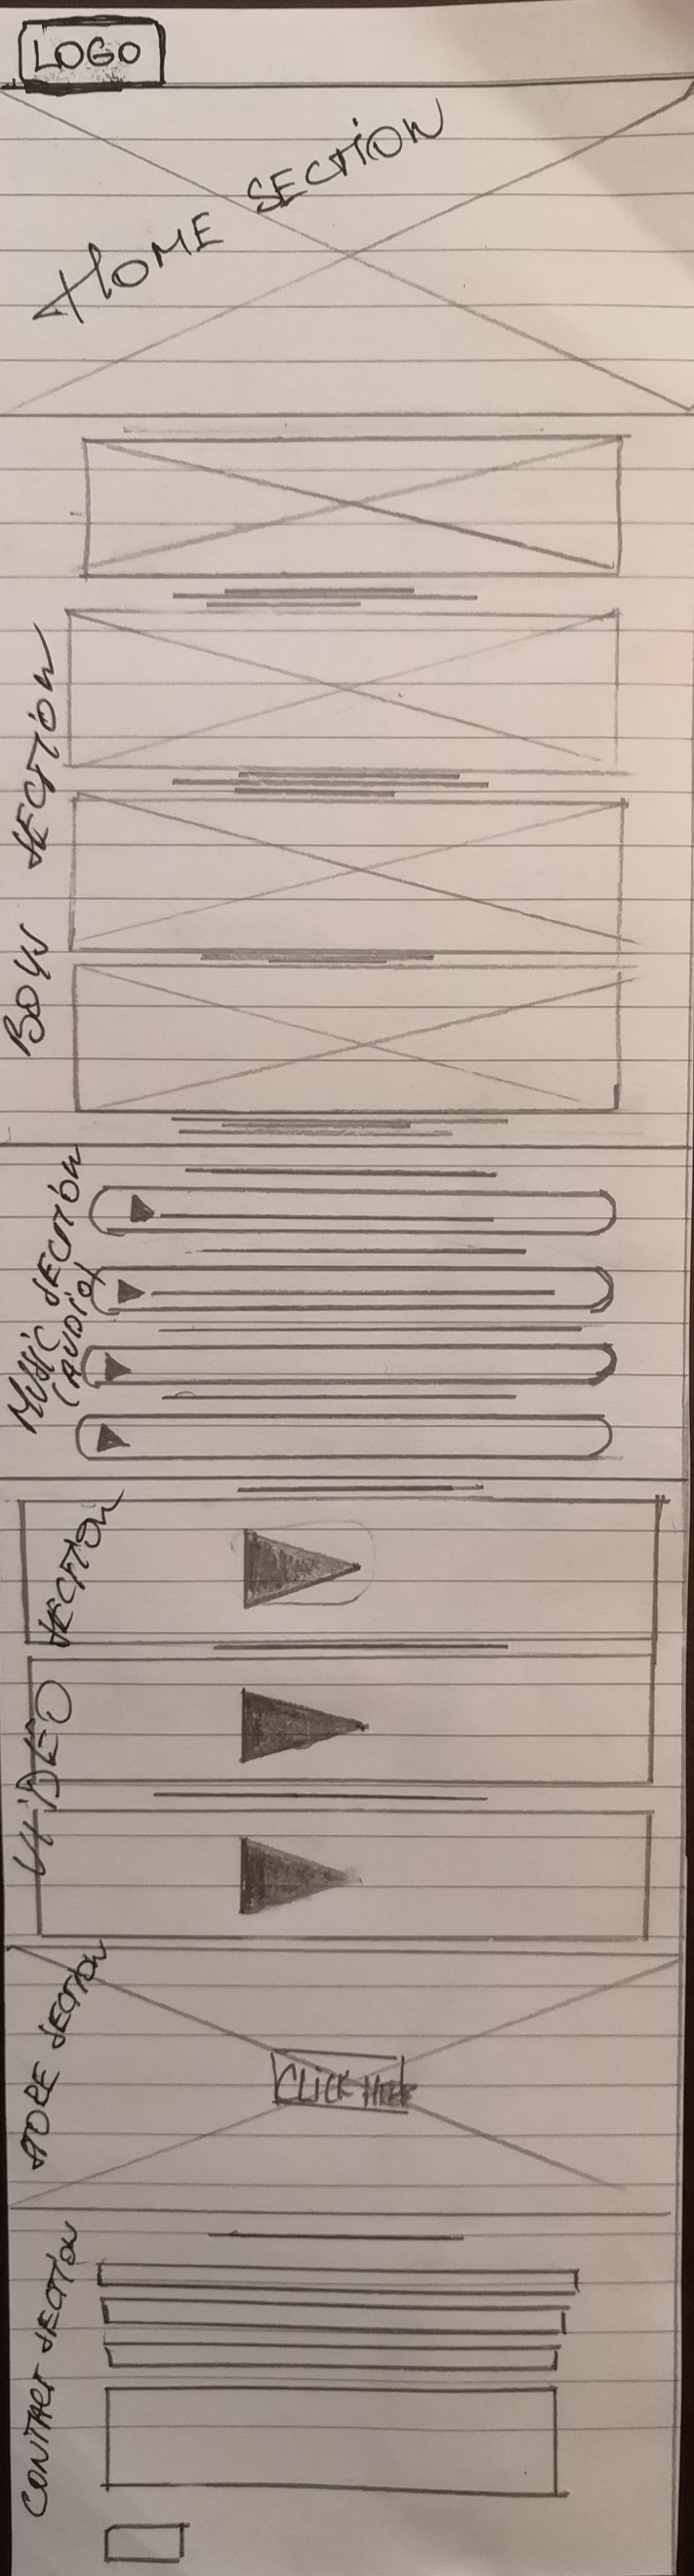 LOGO
HOME SECTION
BOYS SECTION
MUSIC SECTION
(AUDIO)
VIDEO SECTION
STORE SECTION
CLICK HERE
CONTACT SECTION